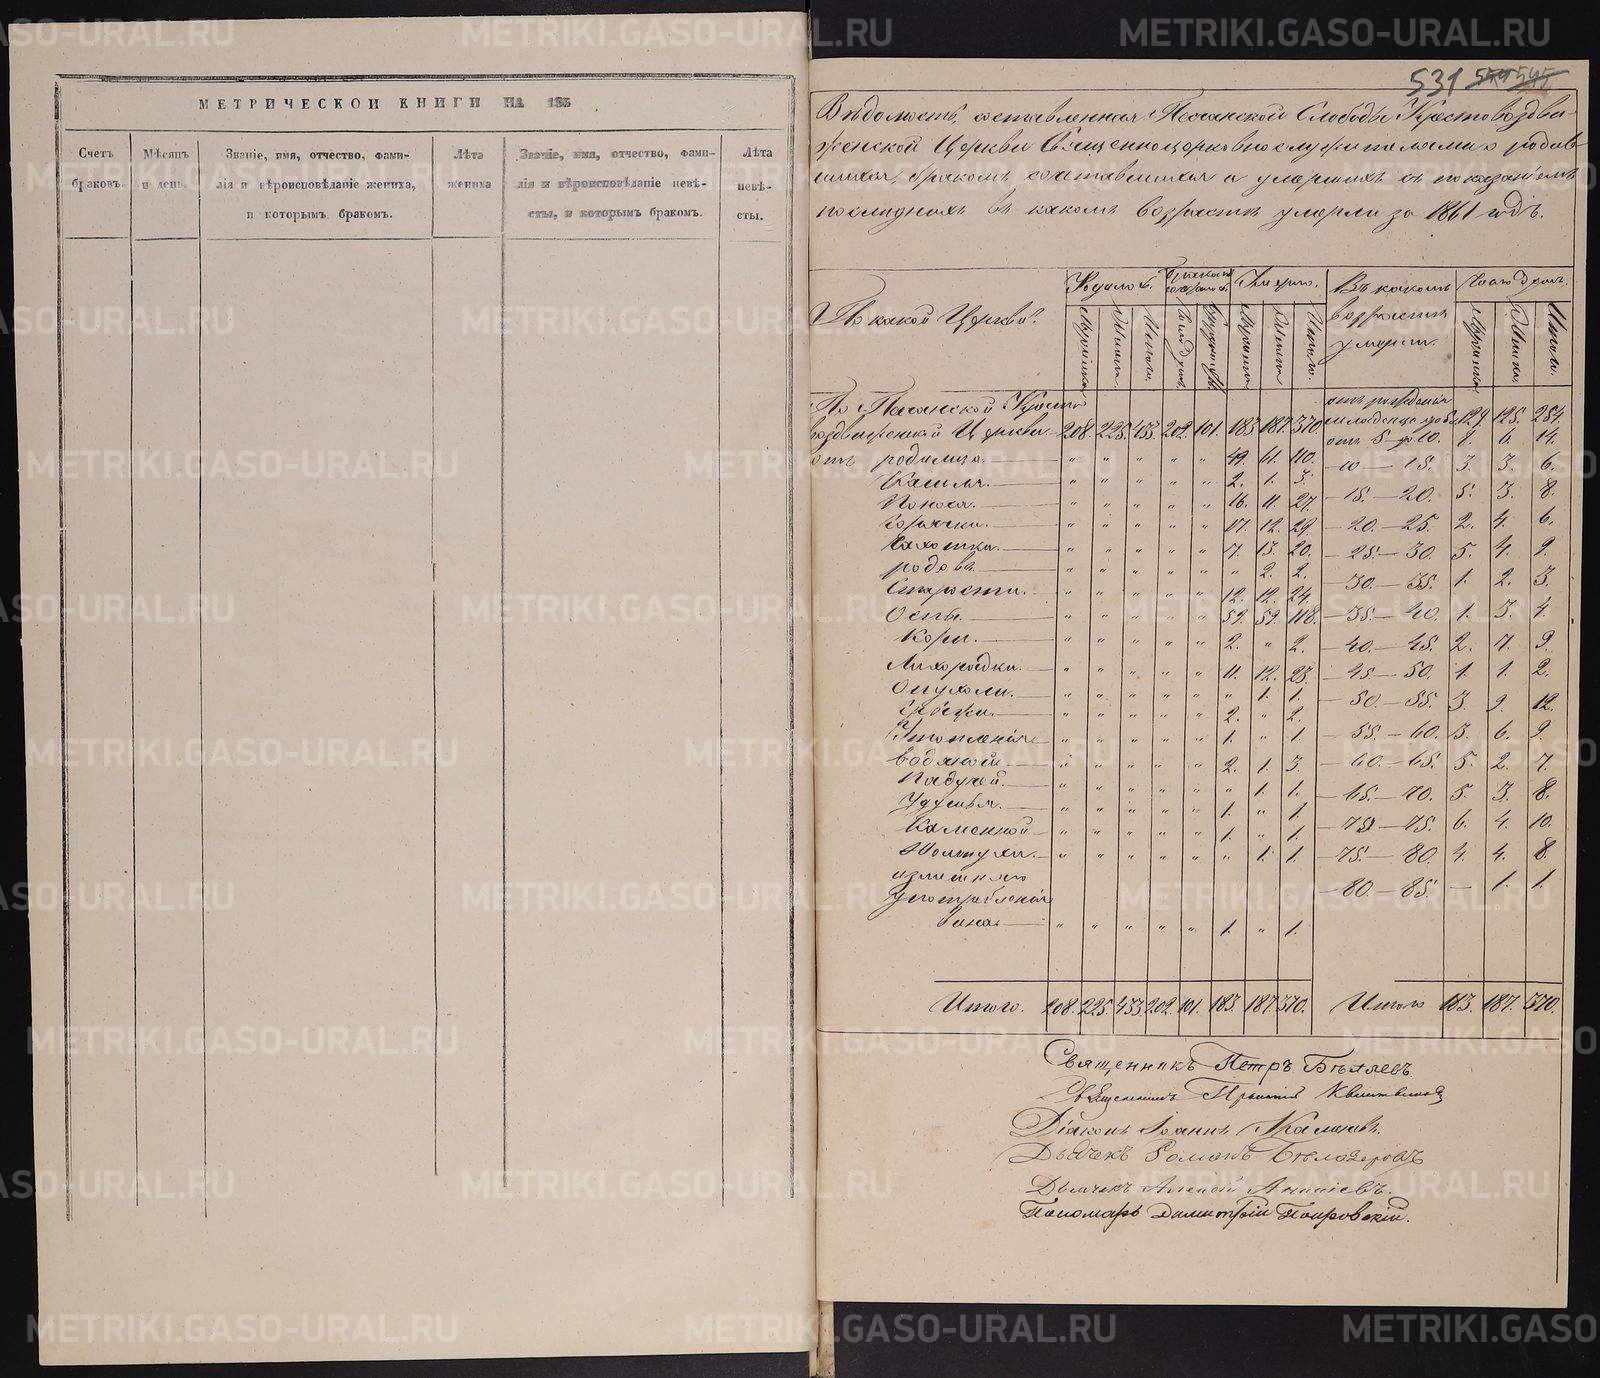 МЕТРИЧЕСКОЙ КНИГИ НА 185
Счетъ браковъ.
Мѣсяцъ и день.
Званіе, имя, отчество, фами-
лія и вѣроисповѣданіе жениха,
и которымъ бракомъ.
Лѣта жениха
Званіе, имя, отчество, фами-
лія и вѣроисповѣданіе невѣ-
сты, и которымъ бракомъ.
Лѣта невѣ-
сты.
531 544 545
Вѣдомость, составленная Песчанской Слободы Крестовоздви-
женской Церкви Священноцерковнослужителями о родив-
шихся, бракомъ сочтавшихся и умершихъ съ показаніемъ
послѣднихъ въ какомъ возрастѣ умерли за 1861 годъ.
По какой Церкви?
Родилось.
Умерло.
Въ какомъ
возрастѣ
умерли.
Число душъ.
Мужеска
Женска.
Итого.
Мужеска
Женска
Итого.
Мужеска
Женска.
Итого.
По Песчанской Кресто
воздвиженской Церкви 208. 225. 433. 202. 101. 183. 187. 370.
отъ рожденія
129. 125. 254.
отъ 5 до 10. 8. 6. 14.
отъ родимца. " " " " " 49. 61. 110.
— 10 — 15. 3. 3. 6.
Кашля. " " " " " 2. 1. 3.
Поноса. " " " " " 16. 11. 27.
— 15. — 20. 5. 3. 8.
Горячки. " " " " " 17. 12. 29.
— 20. — 25. 2. 4. 6.
Чахотки. " " " " " 7. 13. 20.
— 25. — 30. 5. 4. 9.
родовъ. " " " " " " 2. 2.
— 30. — 35. 1. 2. 3.
Старости. " " " " " 12. 12. 24.
Оспы. " " " " " 59. 59. 118.
— 35. — 40. 1. 3. 4.
Кори. " " " " " 2. " 2.
— 40. — 45. 2. 7. 9.
Лихорадки. " " " " " 11. 12. 23.
— 45. — 50. 1. 1. 2.
Опухоли. " " " " " " 1. 1.
— 50. — 55. 3. 9. 12.
Грыжи. " " " " " 2. " 2.
Утопленія " " " " " 1. " 1.
— 55. — 60. 3. 6. 9.
водяной " " " " " 2. 1. 3.
— 60. — 65. 5. 2. 7.
Падучей. " " " " " " 1. 1.
— 65. — 70. 5. 3. 8.
Удушья. " " " " " 1. " 1.
Каменной " " " " " 1. " 1.
— 70 — 75. 6. 4. 10.
Золотухи. " " " " " " 1. 1.
— 75. — 80. 4. 4. 8.
излишняго
употребленія
— 80. — 85. — 1. 1.
вина. " " " " " 1. " 1.
Итого. 208. 225. 433. 202. 101. 183. 187. 370. Итого 183. 187. 370.
Священникъ Петръ Бѣляевъ.
Священникъ
Діаконъ Іоаннъ
Дьячекъ Романъ Бѣлозеровъ
Дьячекъ Алексѣй
Пономарь Димитрій Покровскій.
METRIKI.GASO-URAL.RU